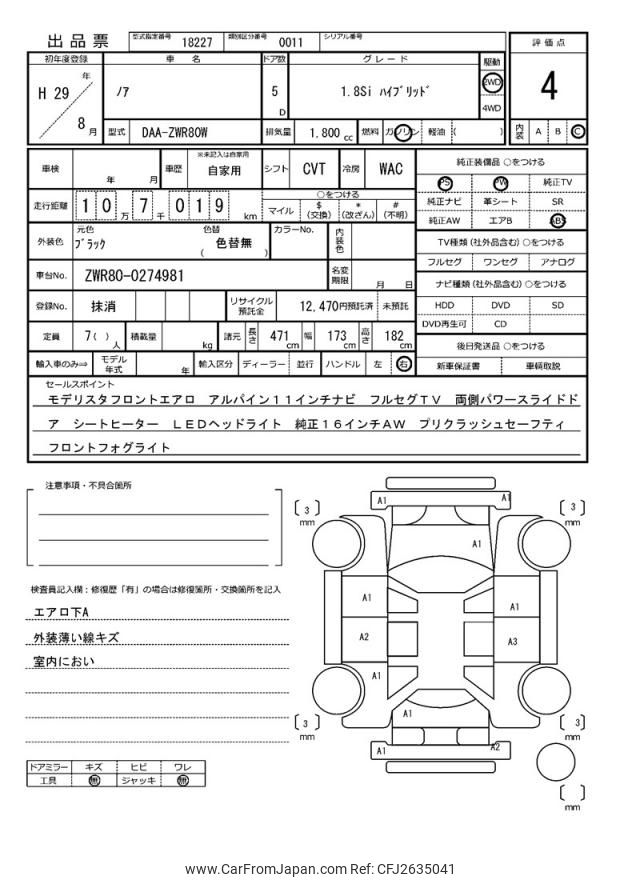 出品票 型式指定番号 18227 類別区分番号 0011 シリアル番号
評価点
初年度登録 車名 ドア数 グレード 駆動
H 29 年 8 月 ノア 5 D 1.8Si ハイブリッド 2WD 4WD
4
型式 DAA-ZWR80W 排気量 1.800 cc 燃料 ガソリン 軽油 ( )
内装 A B C
車検 年 月 車歴 ※未記入は自家用 自家用 シフト CVT 冷房 WAC
走行距離 10万7千019 km ○をつける
マイル $(交換) *(改ざん) #(不明)
外装色 元色 ブラック 色替 ( 色替無 ) カラーNo. 内装色
車台No. ZWR80-0274981 名変期限 月 日
登録No. 抹消 リサイクル預託金 12.470円預託済 未預託
定員 7( )人 積載量 kg 諸元 長さ 471 cm 幅 173 cm 高さ 182 cm
輸入車のみ⇒ モデル年式 年 輸入区分 ディーラー 並行 ハンドル 左 右
純正装備品 ○をつける
PS PW 純正TV
純正ナビ 革シート SR
純正AW エアB ABS
TV種類(社外品含む)○をつける
フルセグ ワンセグ アナログ
ナビ種類(社外品含む)○をつける
HDD DVD SD
DVD再生可 CD
後日発送品 ○をつける
新車保証書 車輌取説
セールスポイント
モデリスタフロントエアロ アルパイン11インチナビ フルセグTV 両側パワースライドド
ア シートヒーター LEDヘッドライト 純正16インチAW プリクラッシュセーフティ
フロントフォグライト
注意事項・不具合箇所
検査員記入欄:修復歴「有」の場合は修復箇所・交換箇所を記入
エアロ下A
外装薄い線キズ
室内におい
ドアミラー キズ ヒビ ワレ
工具 無 ジャッキ 無
[3] mm A1 A1 [3] mm
A1
A1 A1
A2 A3
A1
A1
[3] mm A1 A2 [3] mm
[ ] mm
www.CarFromJapan.com Ref: CFJ2635041